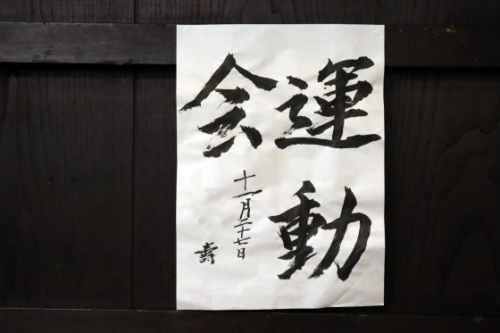 運動
会
十一月二十七日
寿